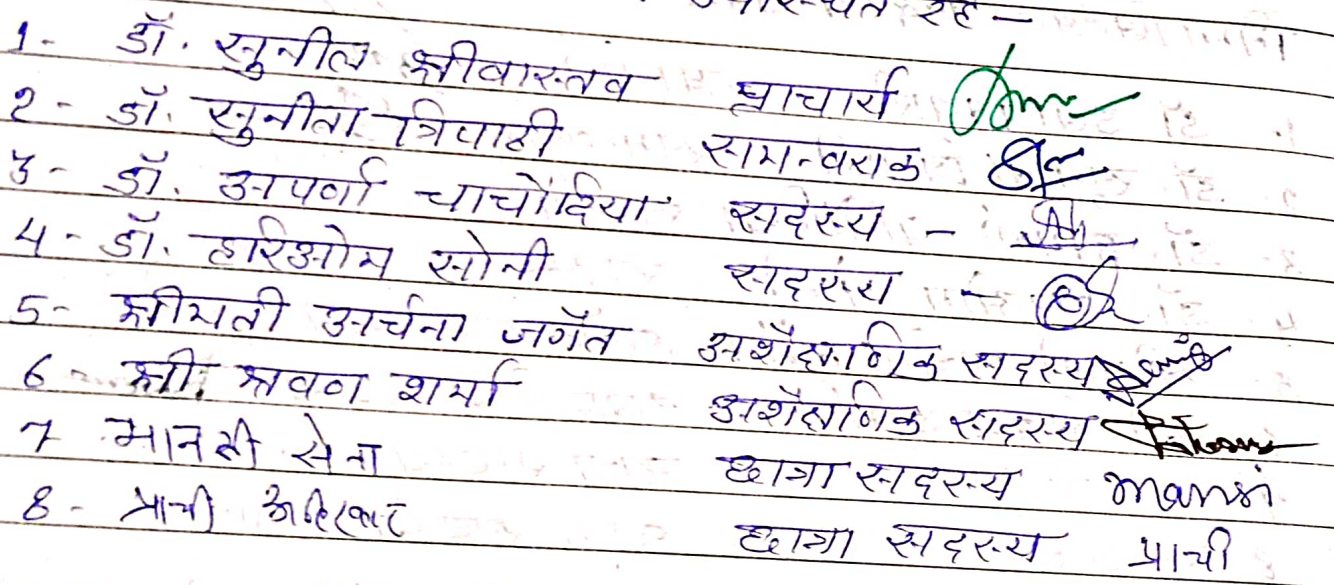 उपस्थित रहे –
1- डॉ. सुनील श्रीवास्तव प्राचार्य
2- डॉ. सुनीता त्रिपाठी समन्वयक
3- डॉ. अपर्णा चाचौंदिया सदस्य -
4- डॉ. हरिओम सोनी सदस्य -
5- श्रीमती अर्चना जगैत अशैक्षणिक सदस्य
6- श्री. श्रवण शर्मा अशैक्षणिक सदस्य
7 मानसी सेन छात्रा सदस्य mansi
8- प्राची अहिरवार छात्रा सदस्य प्राची